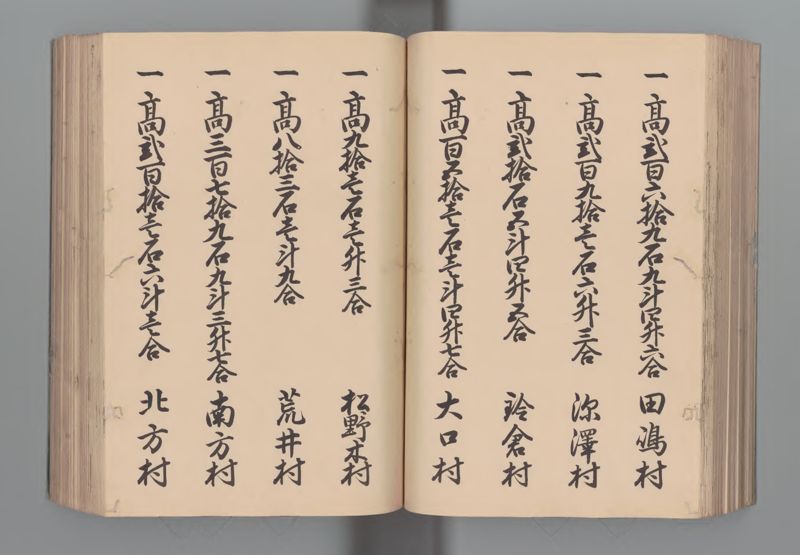 一 高弐百六拾九石九斗四升六合 田嶋村
一 高弐百九拾壱石六升三合 深澤村
一 高弐拾石五斗四升五合 鈴倉村
一 高百五拾壱石壱斗四升七合 大口村
一 高九拾壱石壱升三合 松野木村
一 高八拾三石壱斗九合 荒井村
一 高三百七拾九石九斗三升七合 南方村
一 高弐百拾壱石六斗壱合 北方村